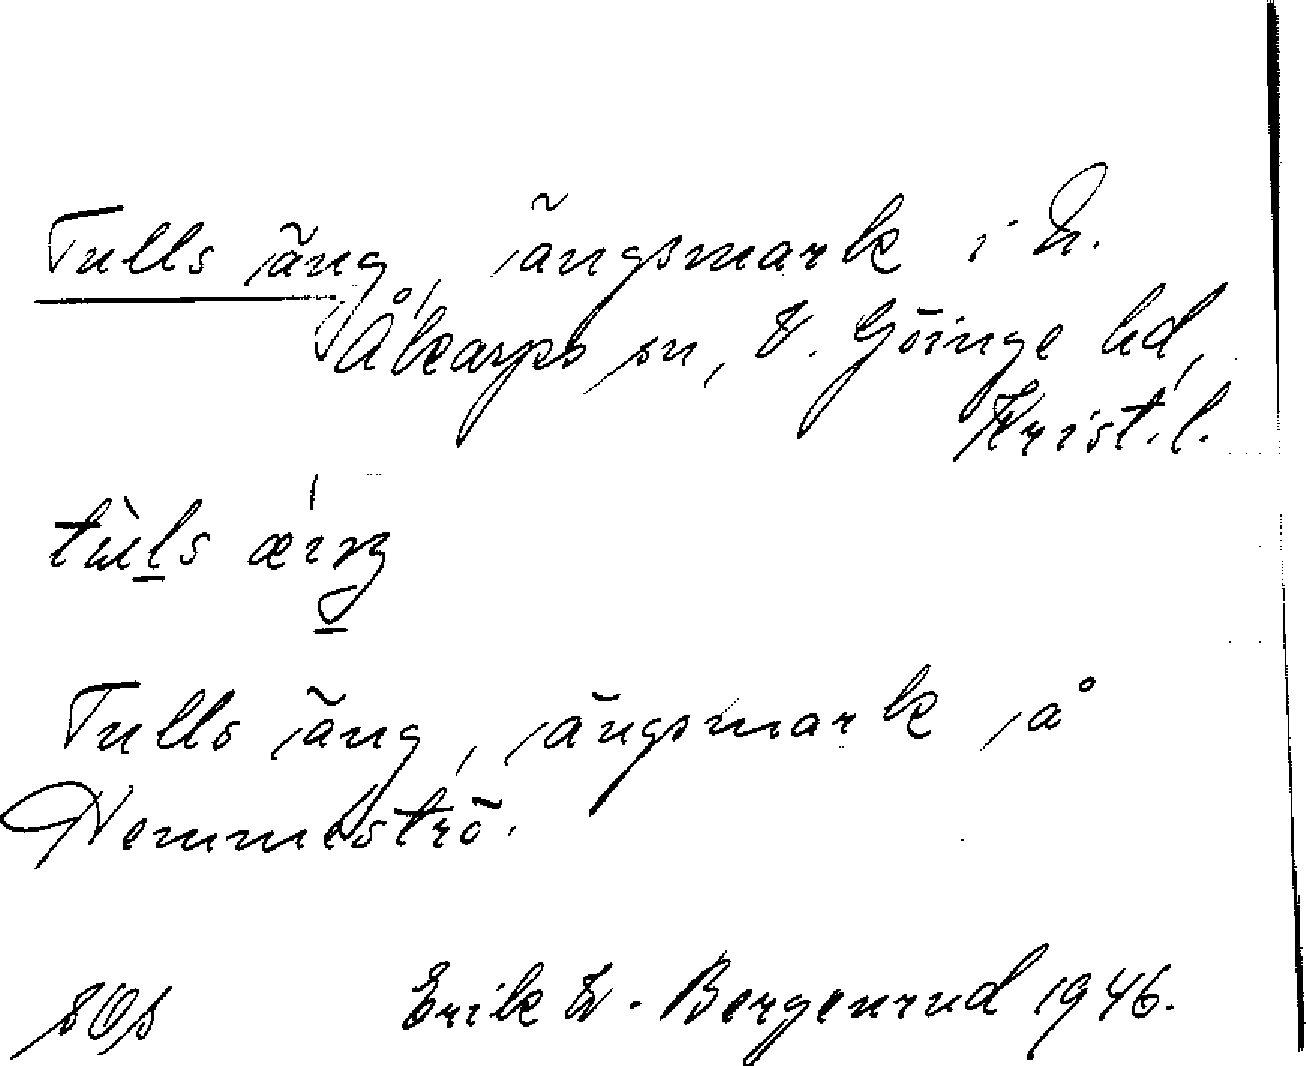 Tulls äng, ängsmark i N.
Åkarps sn, V. Göinge hd,
Krist. l.
Tulls äng, ängsmark å
Hemmeströ.
sOs Erik W. Bergenrud 1946.